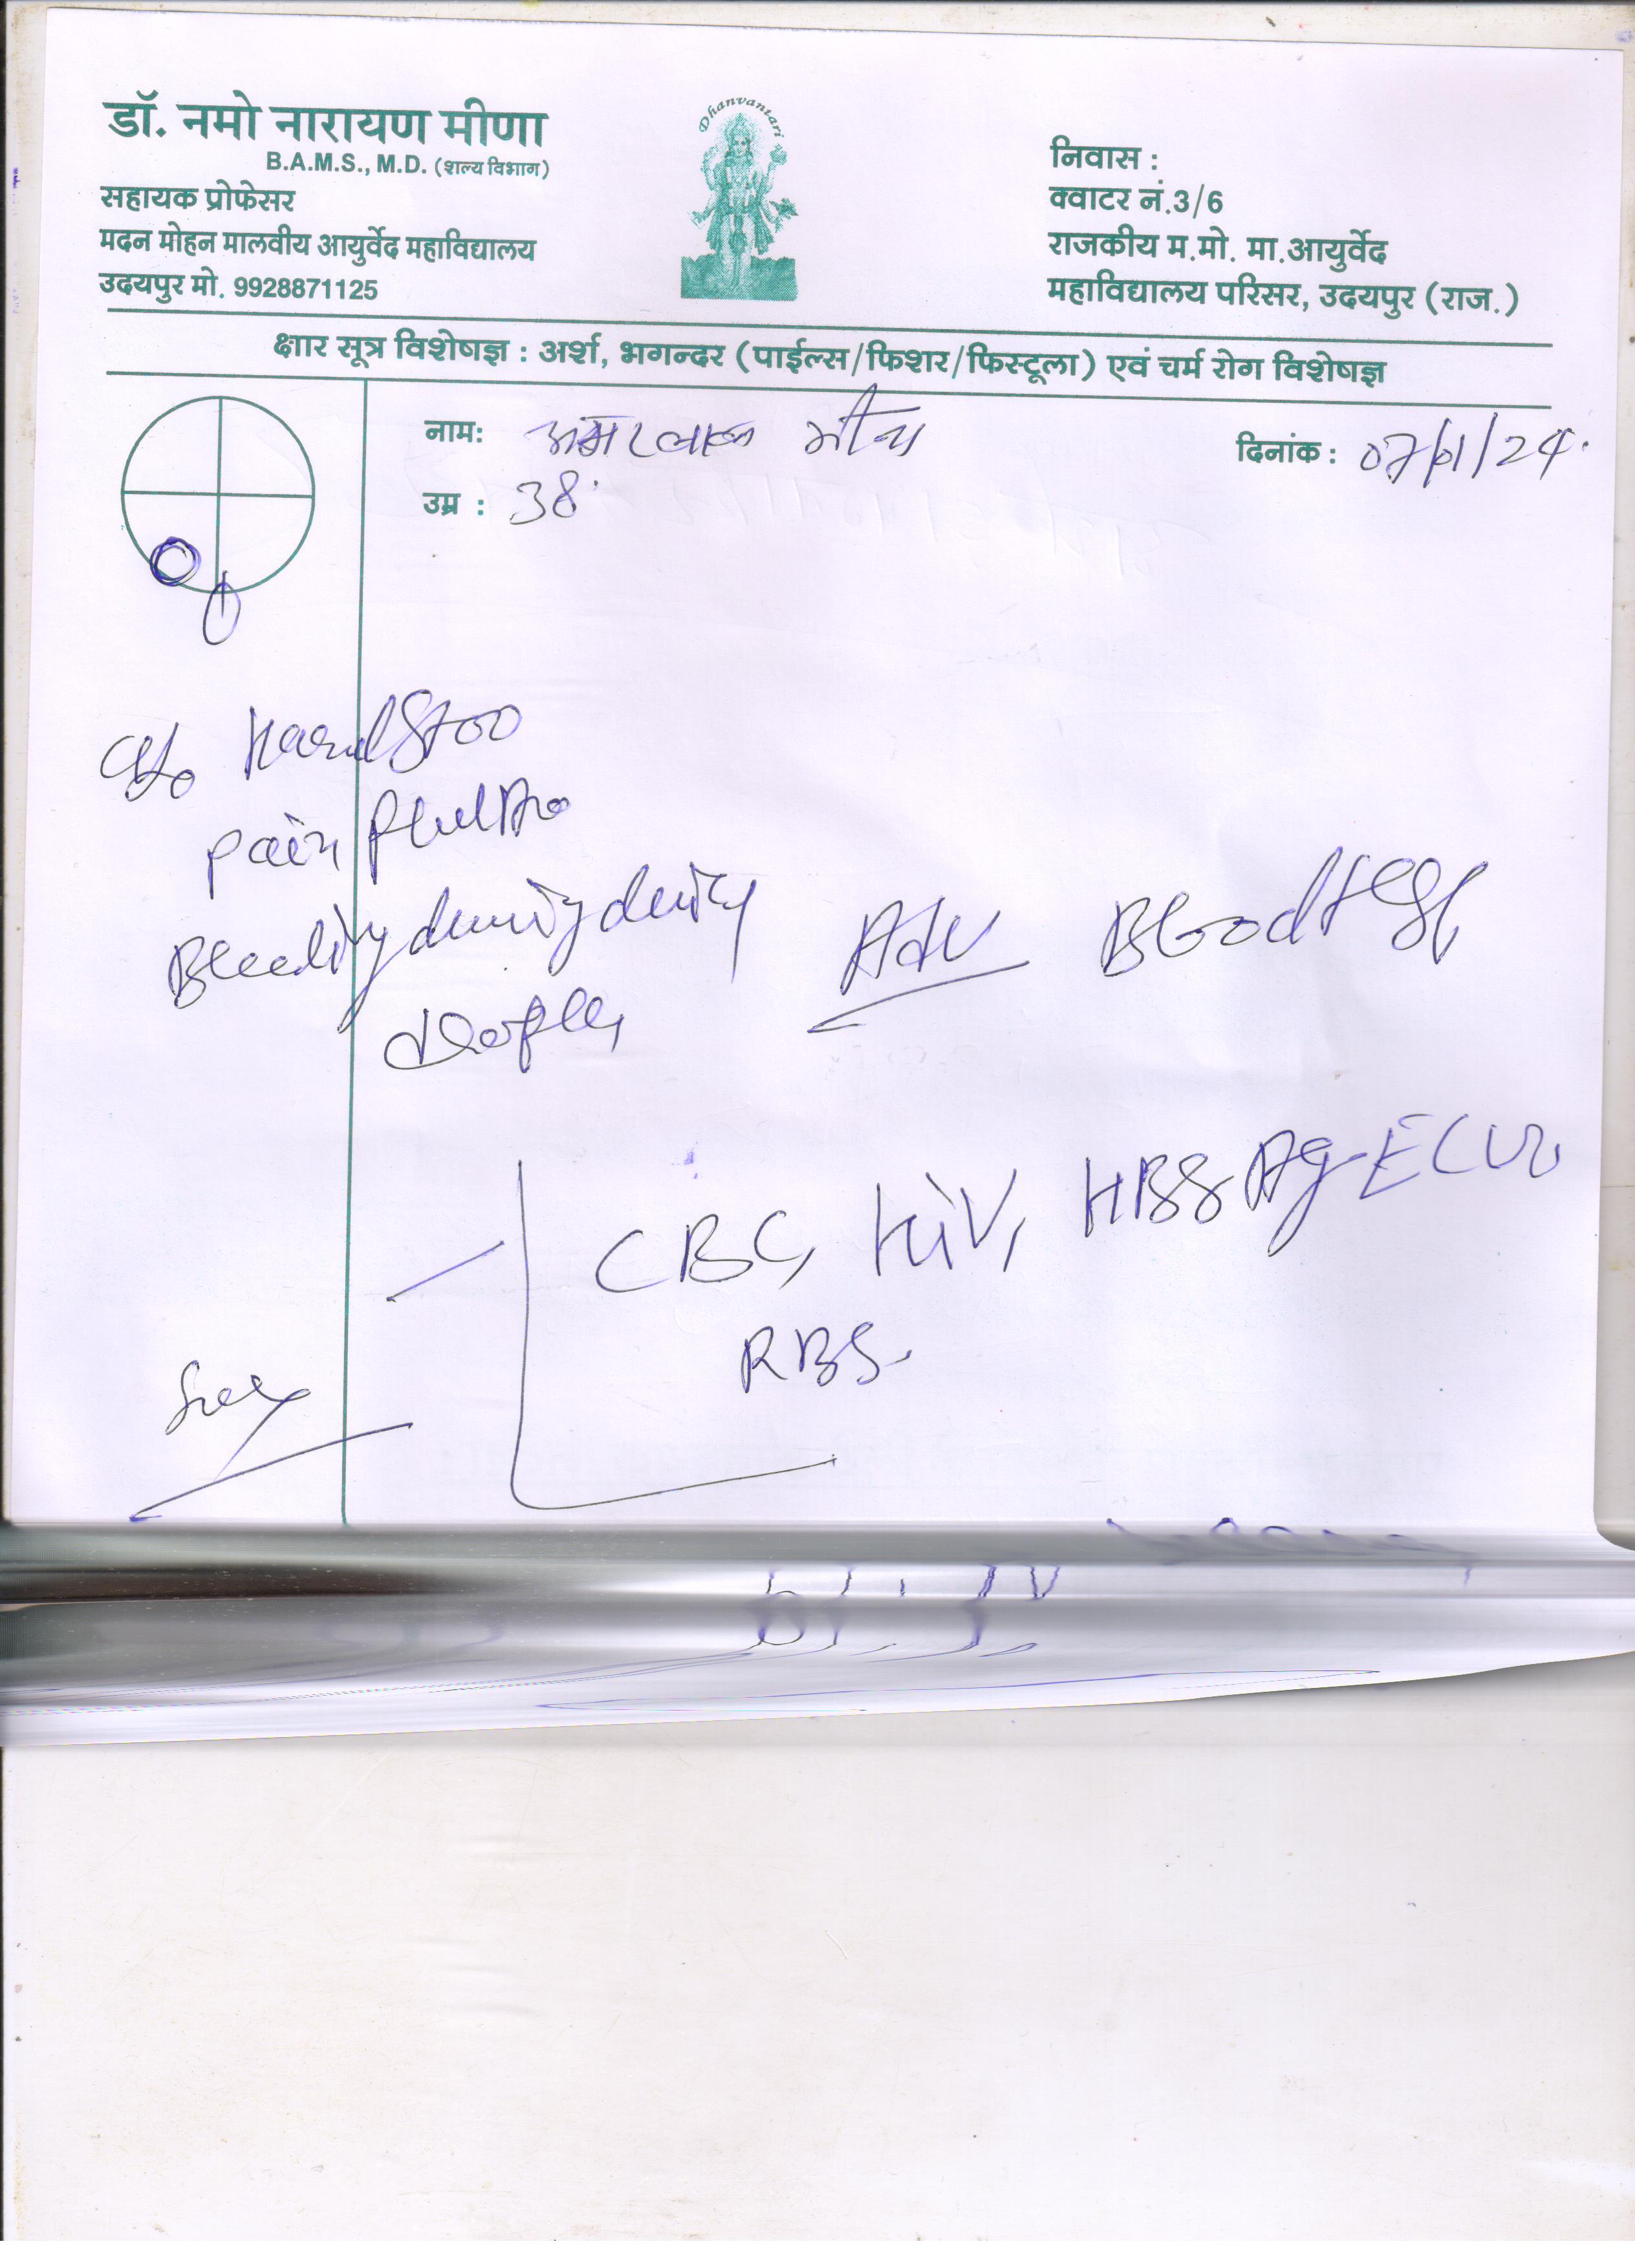 डॉ. नमो नारायण मीणा
B.A.M.S., M.D. (शल्य विभाग)
सहायक प्रोफेसर
मदन मोहन मालवीय आयुर्वेद महाविद्यालय
उदयपुर मो. 9928871125
Dhanvantari
निवास :
क्वाटर नं.3/6
राजकीय म.मो. मा.आयुर्वेद
महाविद्यालय परिसर, उदयपुर (राज.)
क्षार सूत्र विशेषज्ञ : अर्श, भगन्दर (पाईल्स/फिशर/फिस्टूला) एवं चर्म रोग विशेषज्ञ
नाम:
दिनांक : 07/01/24
उम्र : 38
C/o Hard Stoo
pain
Bleeding during
Adv Blood test
CBC, HiV, HBSAg
RBS.